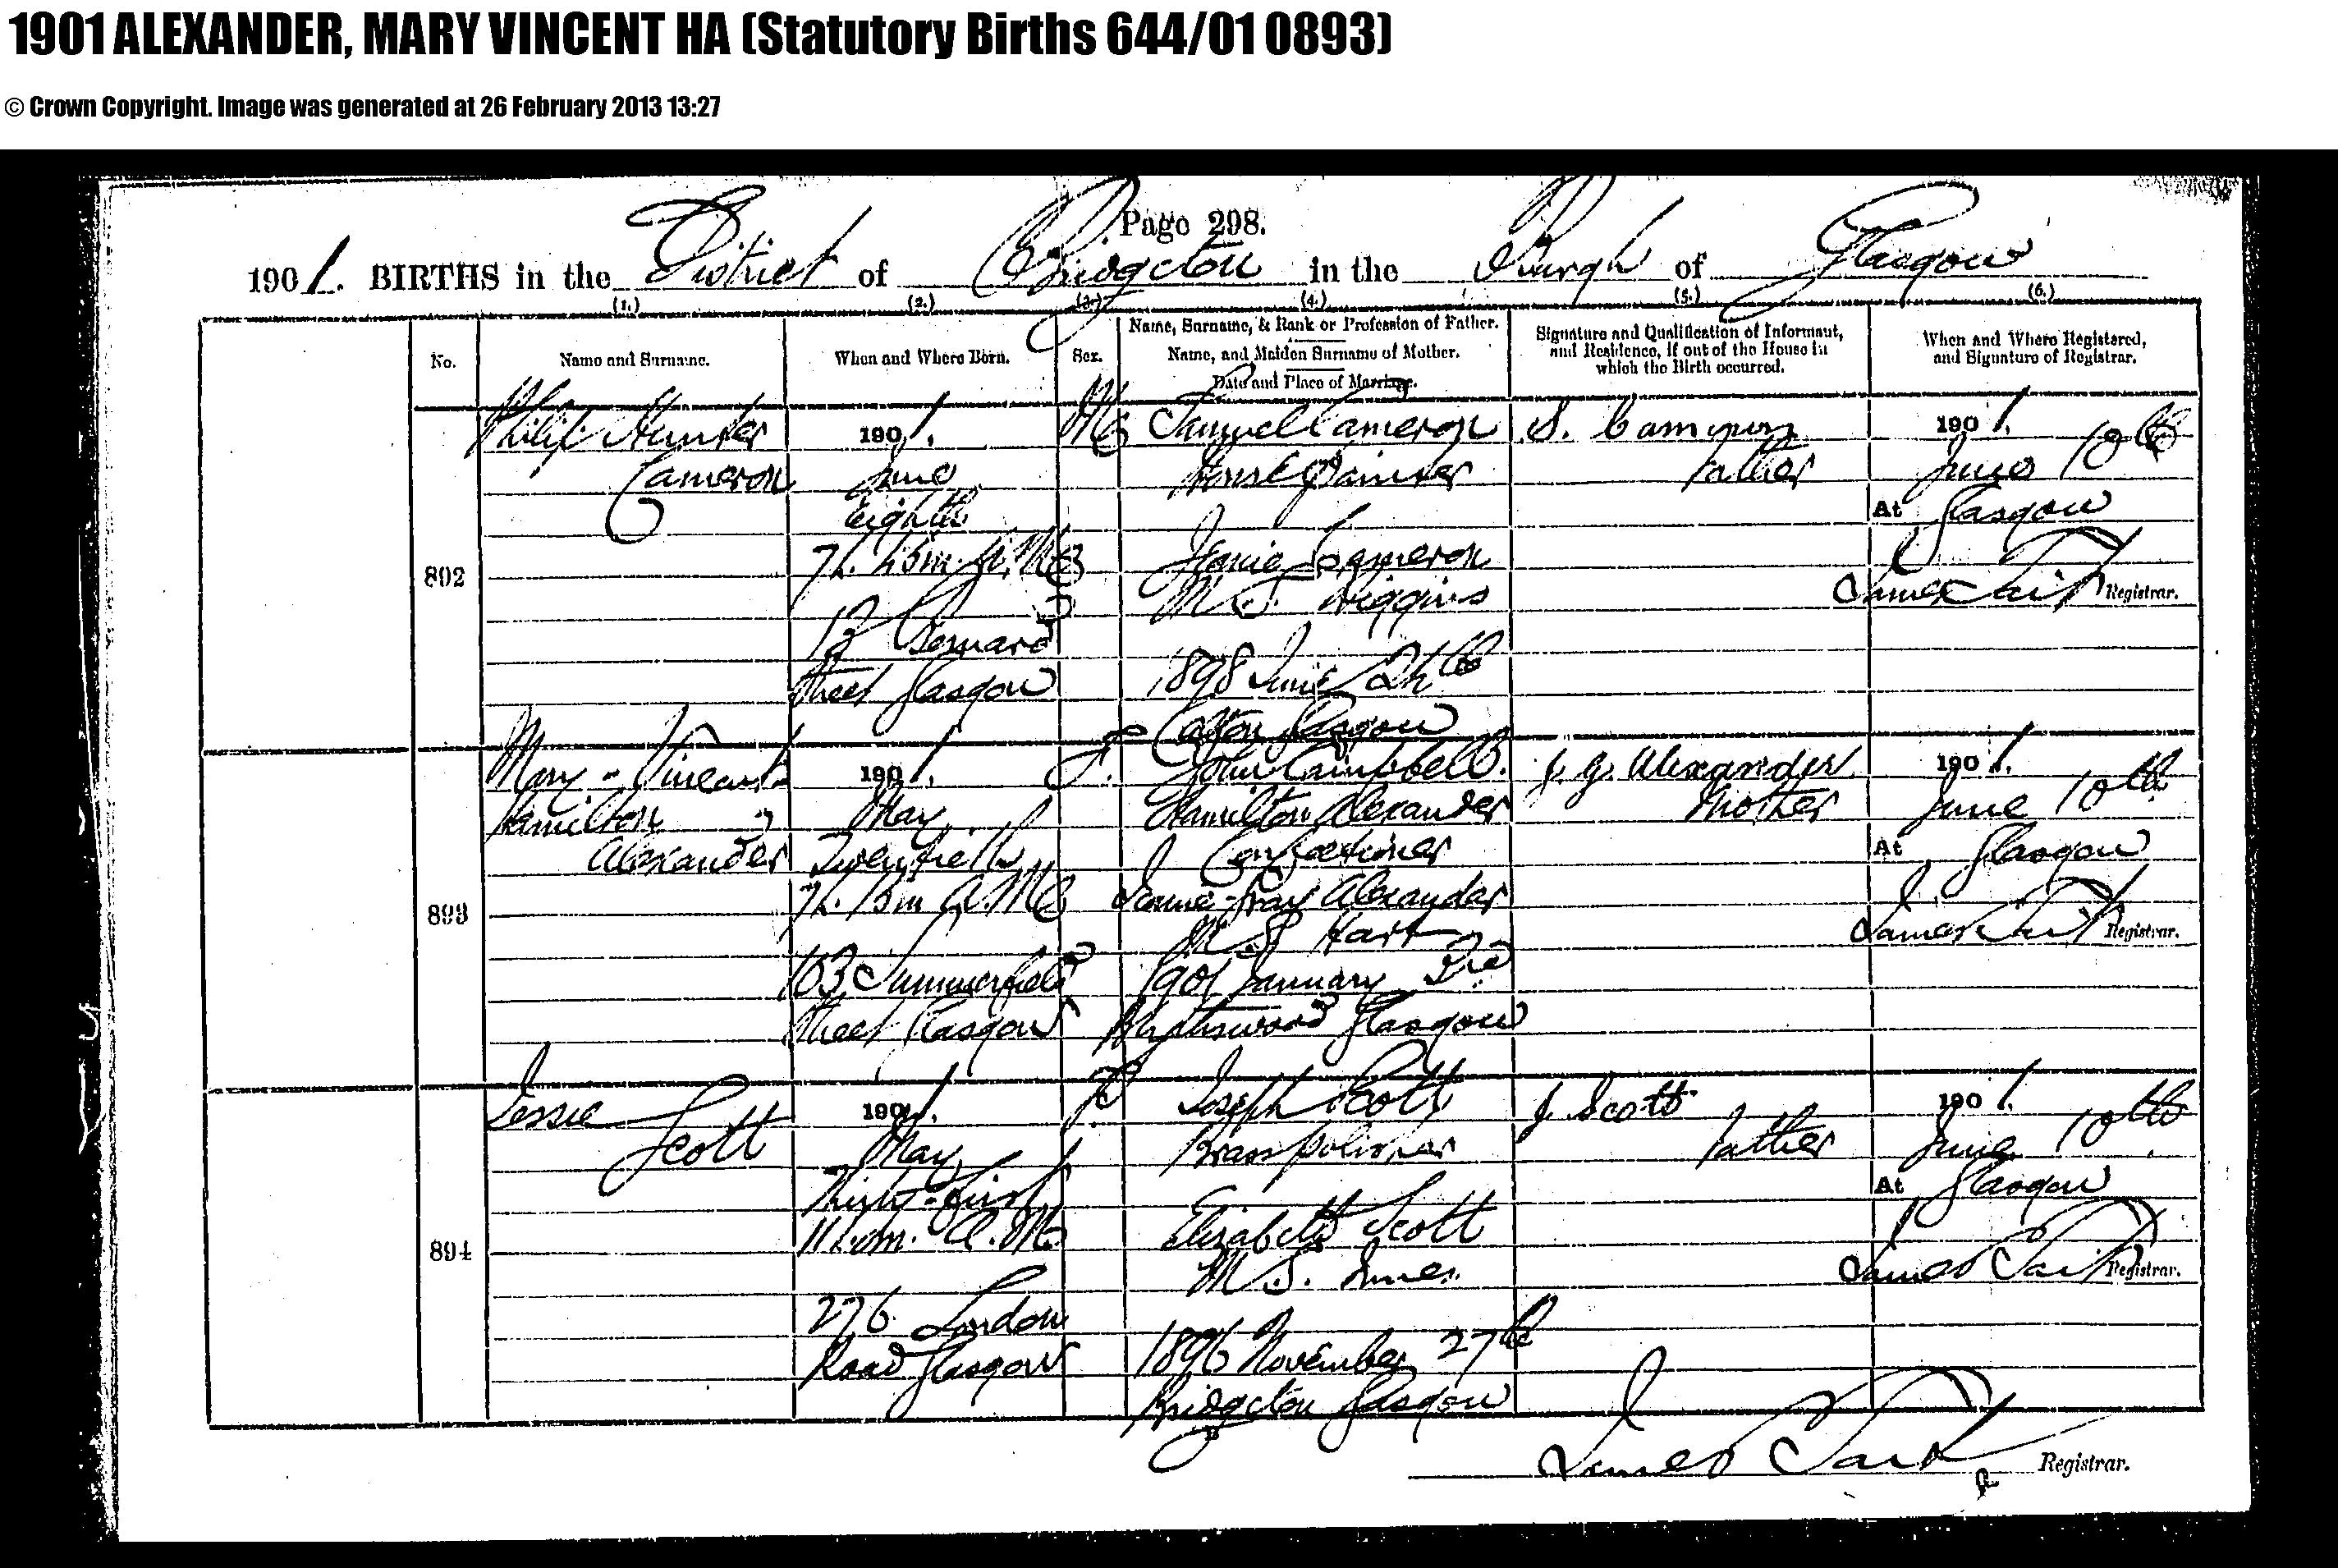 1901 ALEXANDER, MARY VINCENT HA (Statutory Births 644/01 0893)
© Crown Copyright. Image was generated at 26 February 2013 13:27
Page 298.
1901. BIRTHS in the District of Bridgeton in the Burgh of Glasgow
(1.) (2.) (3.) (4.) (5.) (6.)
No.
Name and Surname.
When and Where Born.
Sex.
Name, Surname, & Rank or Profession of Father.
Name, and Maiden Surname of Mother.
Date and Place of Marriage.
Signature and Qualification of Informant,
and Residence, if out of the House in
which the Birth occurred.
When and Where Registered,
and Signature of Registrar.
892
Philip Hunter
Cameron
1901.
June
Eighth
M.
13 Bernard
Street Glasgow
Samuel Cameron
House Painter
Cameron
M.S. Higgins
1898 June 24th
Calton Glasgow
S. Cameron
Father
1901.
June 10th
At Glasgow
James Tait Registrar.
893
Mary Vincent
Hamilton
Alexander
1901.
May
Twentieth
7h. 15m. A.M.
103 Summerfield
Street Glasgow
F.
John Campbell
Hamilton Alexander
Confectioner
Jeanie Gray Alexander
M.S. Hart
1901 January
Blythswood Glasgow
J. G. Alexander
Mother
1901.
June 10th
At Glasgow
James Tait Registrar.
894
Jessie
Scott
1901.
May
Thirty-first
A.M.
276 London
Road Glasgow
F.
Joseph Scott
Brass polisher
Elizabeth Scott
M.S. Innes
1896 November 27th
Bridgeton Glasgow
J. Scott
Father
1901.
June 10th
At Glasgow
James Tait Registrar.
James Tait Registrar.